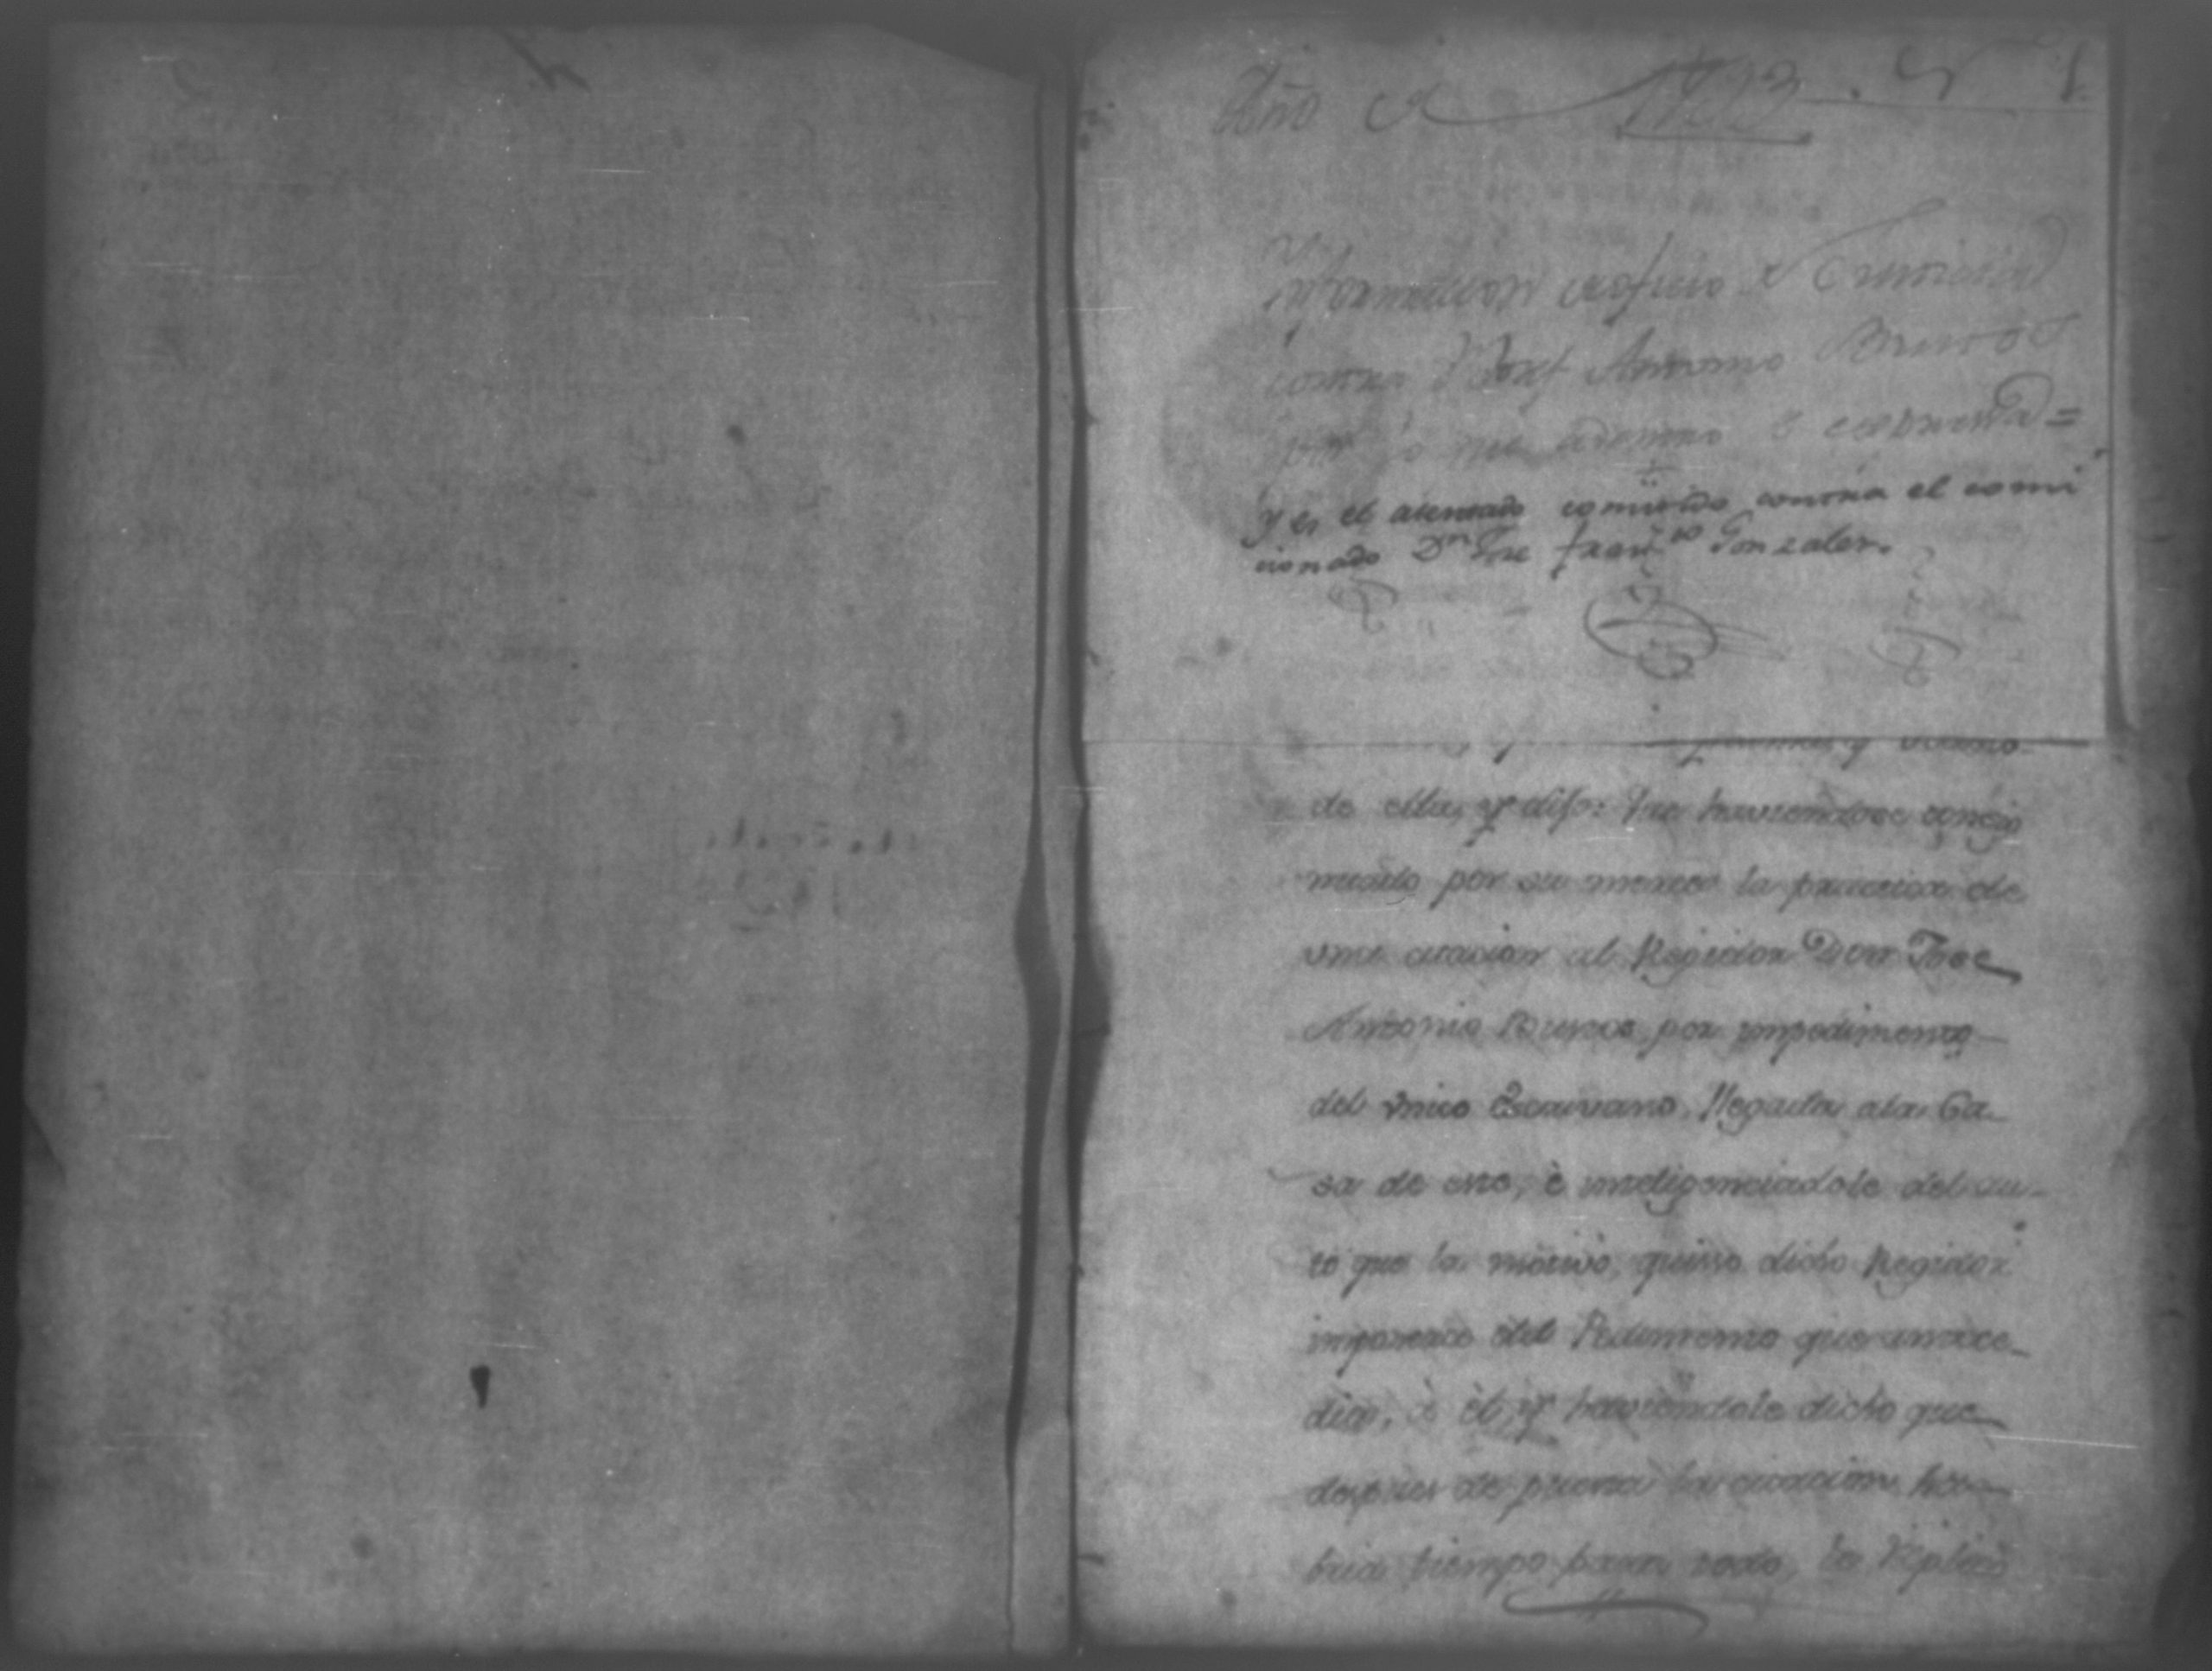 Año de 1793
Informacion de oficio
contra Dn Josf Antonio Burnos
por lo que adentro se espresa =
Y es el atentado cometido contra el comi
cionado Dn Jse Franco Gonzales.
de ella, y dijo: Que haviendose
por su merced la practica de
una citacion al Regidor Don Jose
Antonio por impedimento
del Vnico Escrivano, llegada ala Ca-
sa de este, è inteligenciadole del au-
to que la motivò, quiso dicho Regidor
imponerse del Pedimento que antece-
diò, à èl, y haviendole dicho que
despues de puesta la citacion ha-
bria tiempo para todo, le Replicò